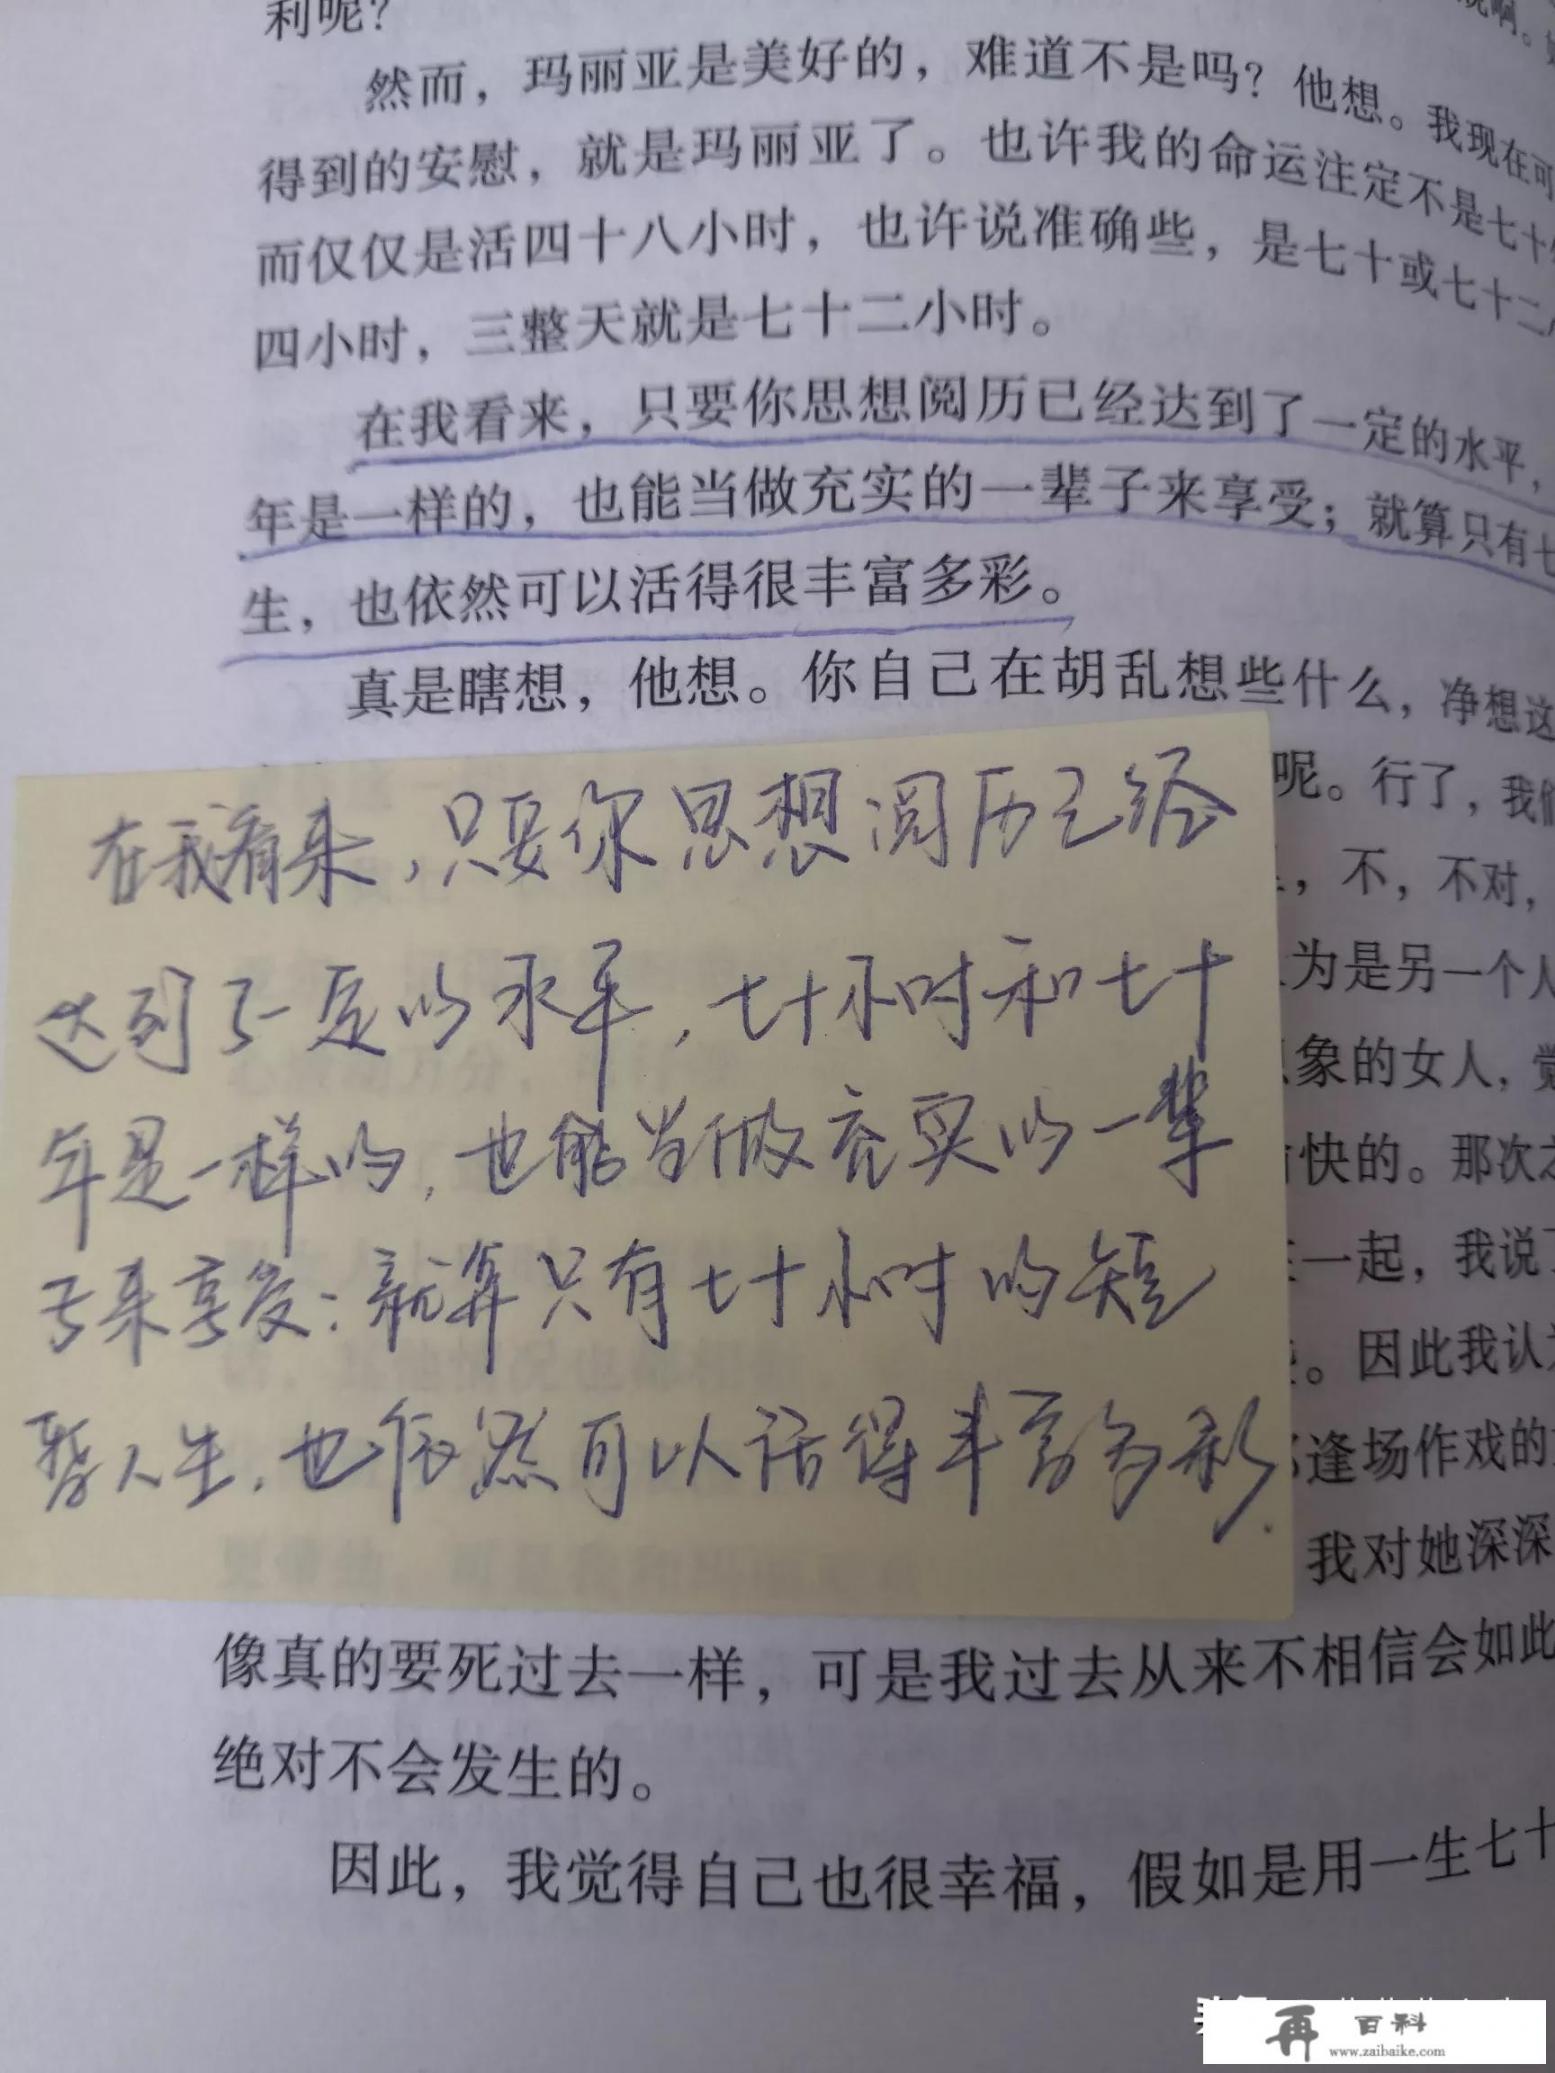 利呢？
然而，玛丽亚是美好的，难道不是吗？他想。我现在可
得到的安慰，就是玛丽亚了。也许我的命运注定不是七十
而仅仅是活四十八小时，也许说准确些，是七十或七十二
四小时，三整天就是七十二小时。
在我看来，只要你思想阅历已经达到了一定的水平，
年是一样的，也能当做充实的一辈子来享受；就算只有七
生，也依然可以活得很丰富多彩。
真是瞎想，他想。你自己在胡乱想些什么，净想这
呢。行了，我们
，不，不对，
为是另一个人
象的女人，觉
快的。那次
一起，我说
。因此我认为
逢场作戏的
我对她深深
在我看来，只要你思想阅历已经
达到了一定的水平，七十小时和七十
年是一样的，也能当做充实的一辈
子来享受：就算只有七十小时的短
暂人生，也依然可以活得丰富多彩.
像真的要死过去一样，可是我过去从来不相信会如此
绝对不会发生的。
因此，我觉得自己也很幸福，假如是用一生七十
再 百科
www.zaibaike.com